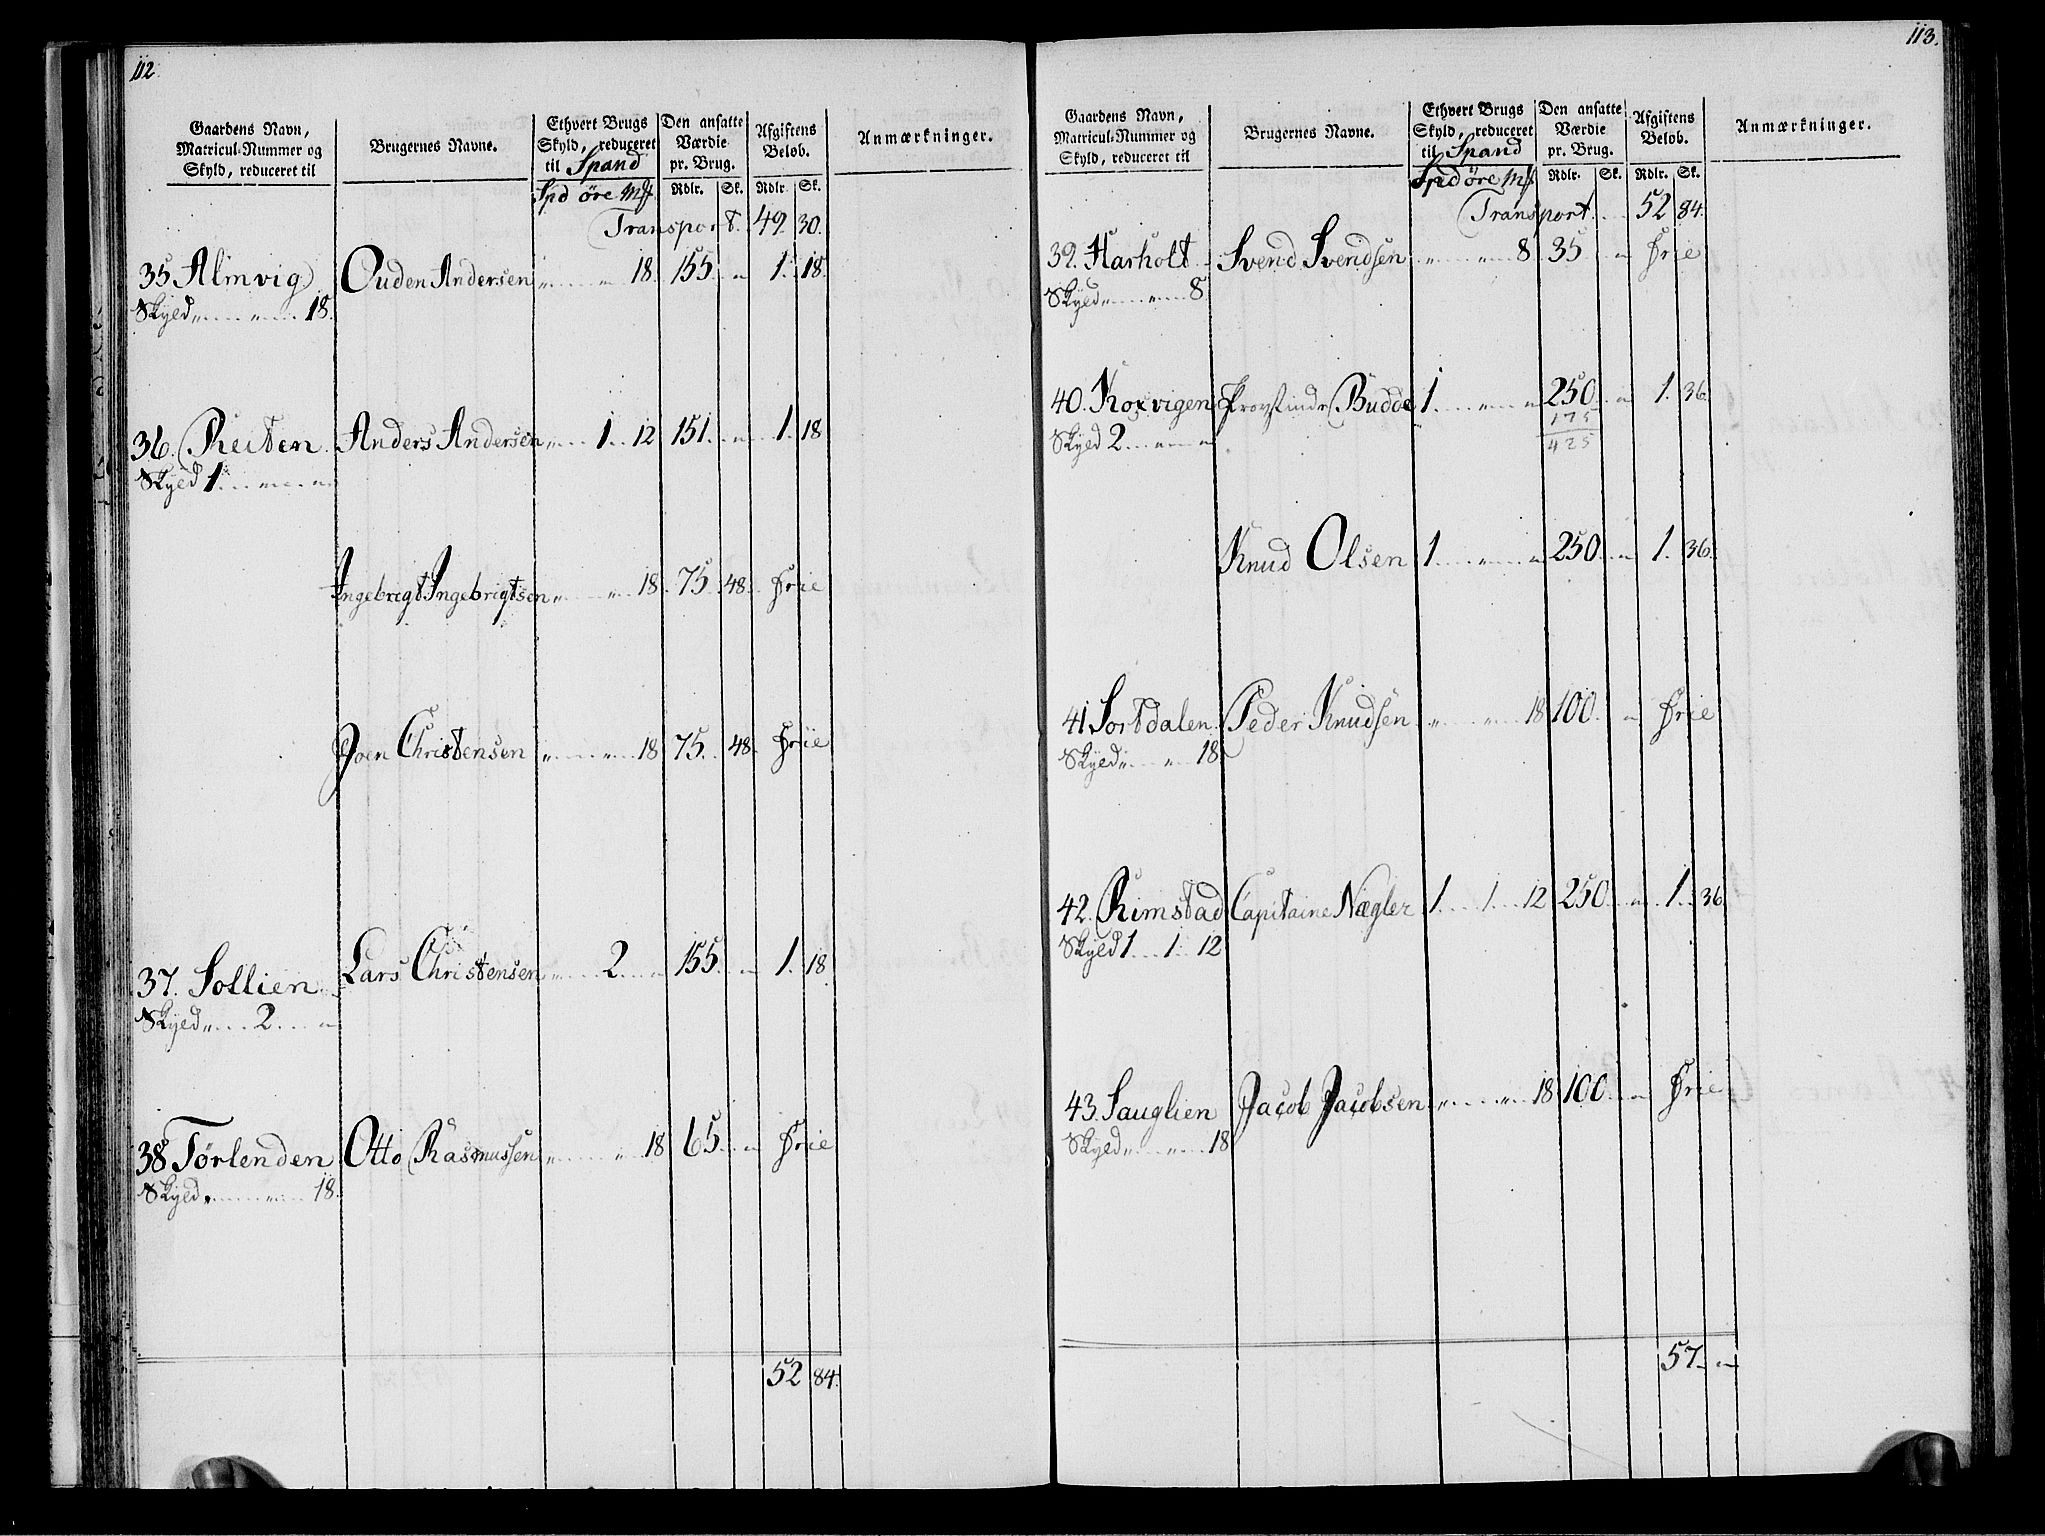 112.
Gaardens Navn, Matricul-Nummer og Skyld, reduceret til | Brugernes Navne. | Ethvert Brugs Skyld, reduceret til Spand | Den ansatte Værdie pr. Brug. | Afgiftens Beløb. | Anmærkninger.
Spd øre Mk | Rdlr. | Sk. | Rdlr. | Sk.
Transport. 49. 30.
35 Almvig Ouden Andersen " " 18. 155. " 1. 18.
Skyld " " 18.
36. Reiten Anders Andersen " 1. 12 151. " 1. 18
Skyld 1. " "
Ingebrigt Ingebrigtsen " " 18. 75. 48. Frie
Joen Christensen " " 18 75. 48. Friie
37. Sollien Lars Christensen " 2. " 155. " 1. 18
Skyld " 2. "
38 Tørlenden Otto Rasmussen " " 18 65. " Frie
Skyld " " 18.
52 84.
113.
Gaardens Navn, Matricul-Nummer og Skyld, reduceret til | Brugernes Navne. | Ethvert Brugs Skyld, reduceret til Spand | Den ansatte Værdie pr. Brug. | Afgiftens Beløb. | Anmærkninger.
Spd øre Mk | Rdlr. | Sk. | Rdlr. | Sk.
Transport. 52 84.
39. Harholt Svend Svendsen " " 8 35 " Frie
Skyld " " 8
40. Koxvigen Provstinde Budde 1. " " 250. " 1. 36.
Skyld 2. " " 175
425
Knud Olsen 1. " " 250. " 1. 36.
41 Sortdalen Peder Knudsen " " 18 100. " Frie
Skyld " " 18.
42. Rimstad Capitaine Nægler 1. 1. 12 250. " 1. 36
Skyld 1. 1. 12
43. Sauglien Jacob Jacobsen " " 18 100. " Frie
Skyld " " 18
57. "